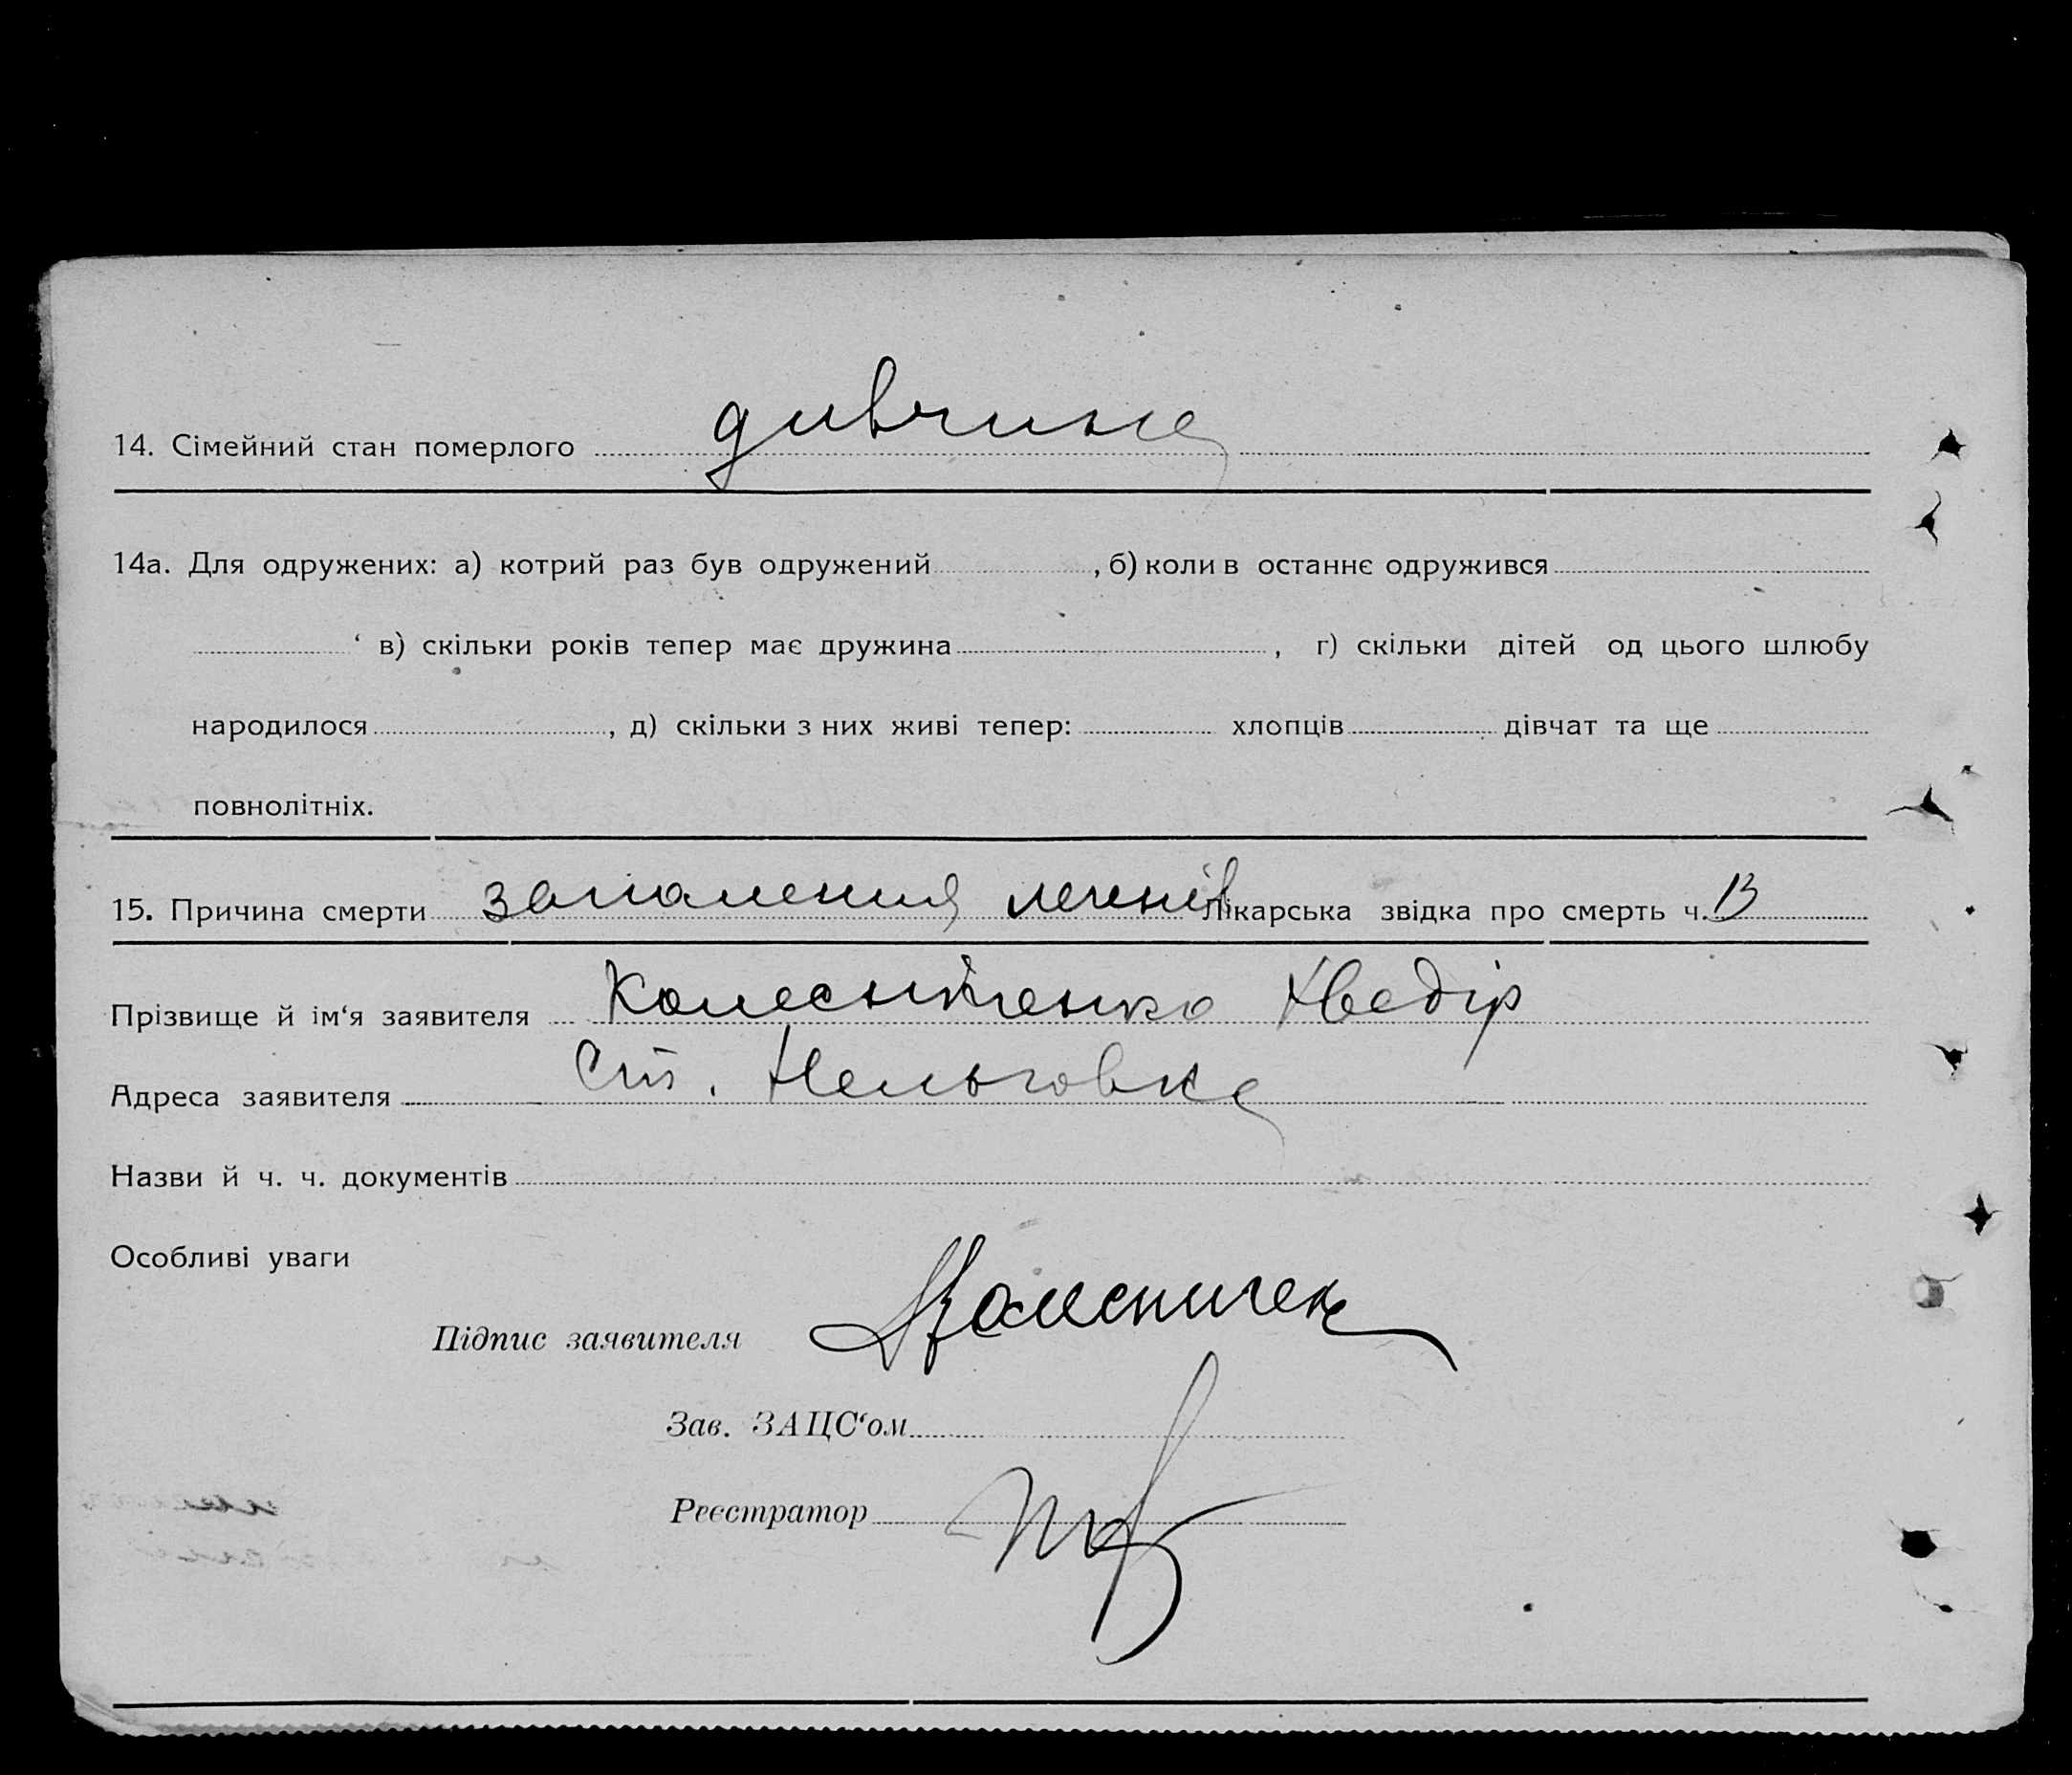 14. Сімейний стан померлого дивчина
14а. Для одружених: а) котрий раз був одружений , б) коли в останнє одружився
‘ в) скільки років тепер має дружина , г) скільки дітей од цього шлюбу
народилося , д) скільки з них живі тепер: хлопців дівчат та ще
повнолітніх.
15. Причина смерти запалення легенів Лікарська звідка про смерть ч.
Прізвище й ім‘я заявителя Колесніченко Хведір
Адреса заявителя Ст. Нельговка
Назви й ч. ч. документів
Особливі уваги
Підпис заявителя
Зав. ЗАЦС‘ом
Реєстратор